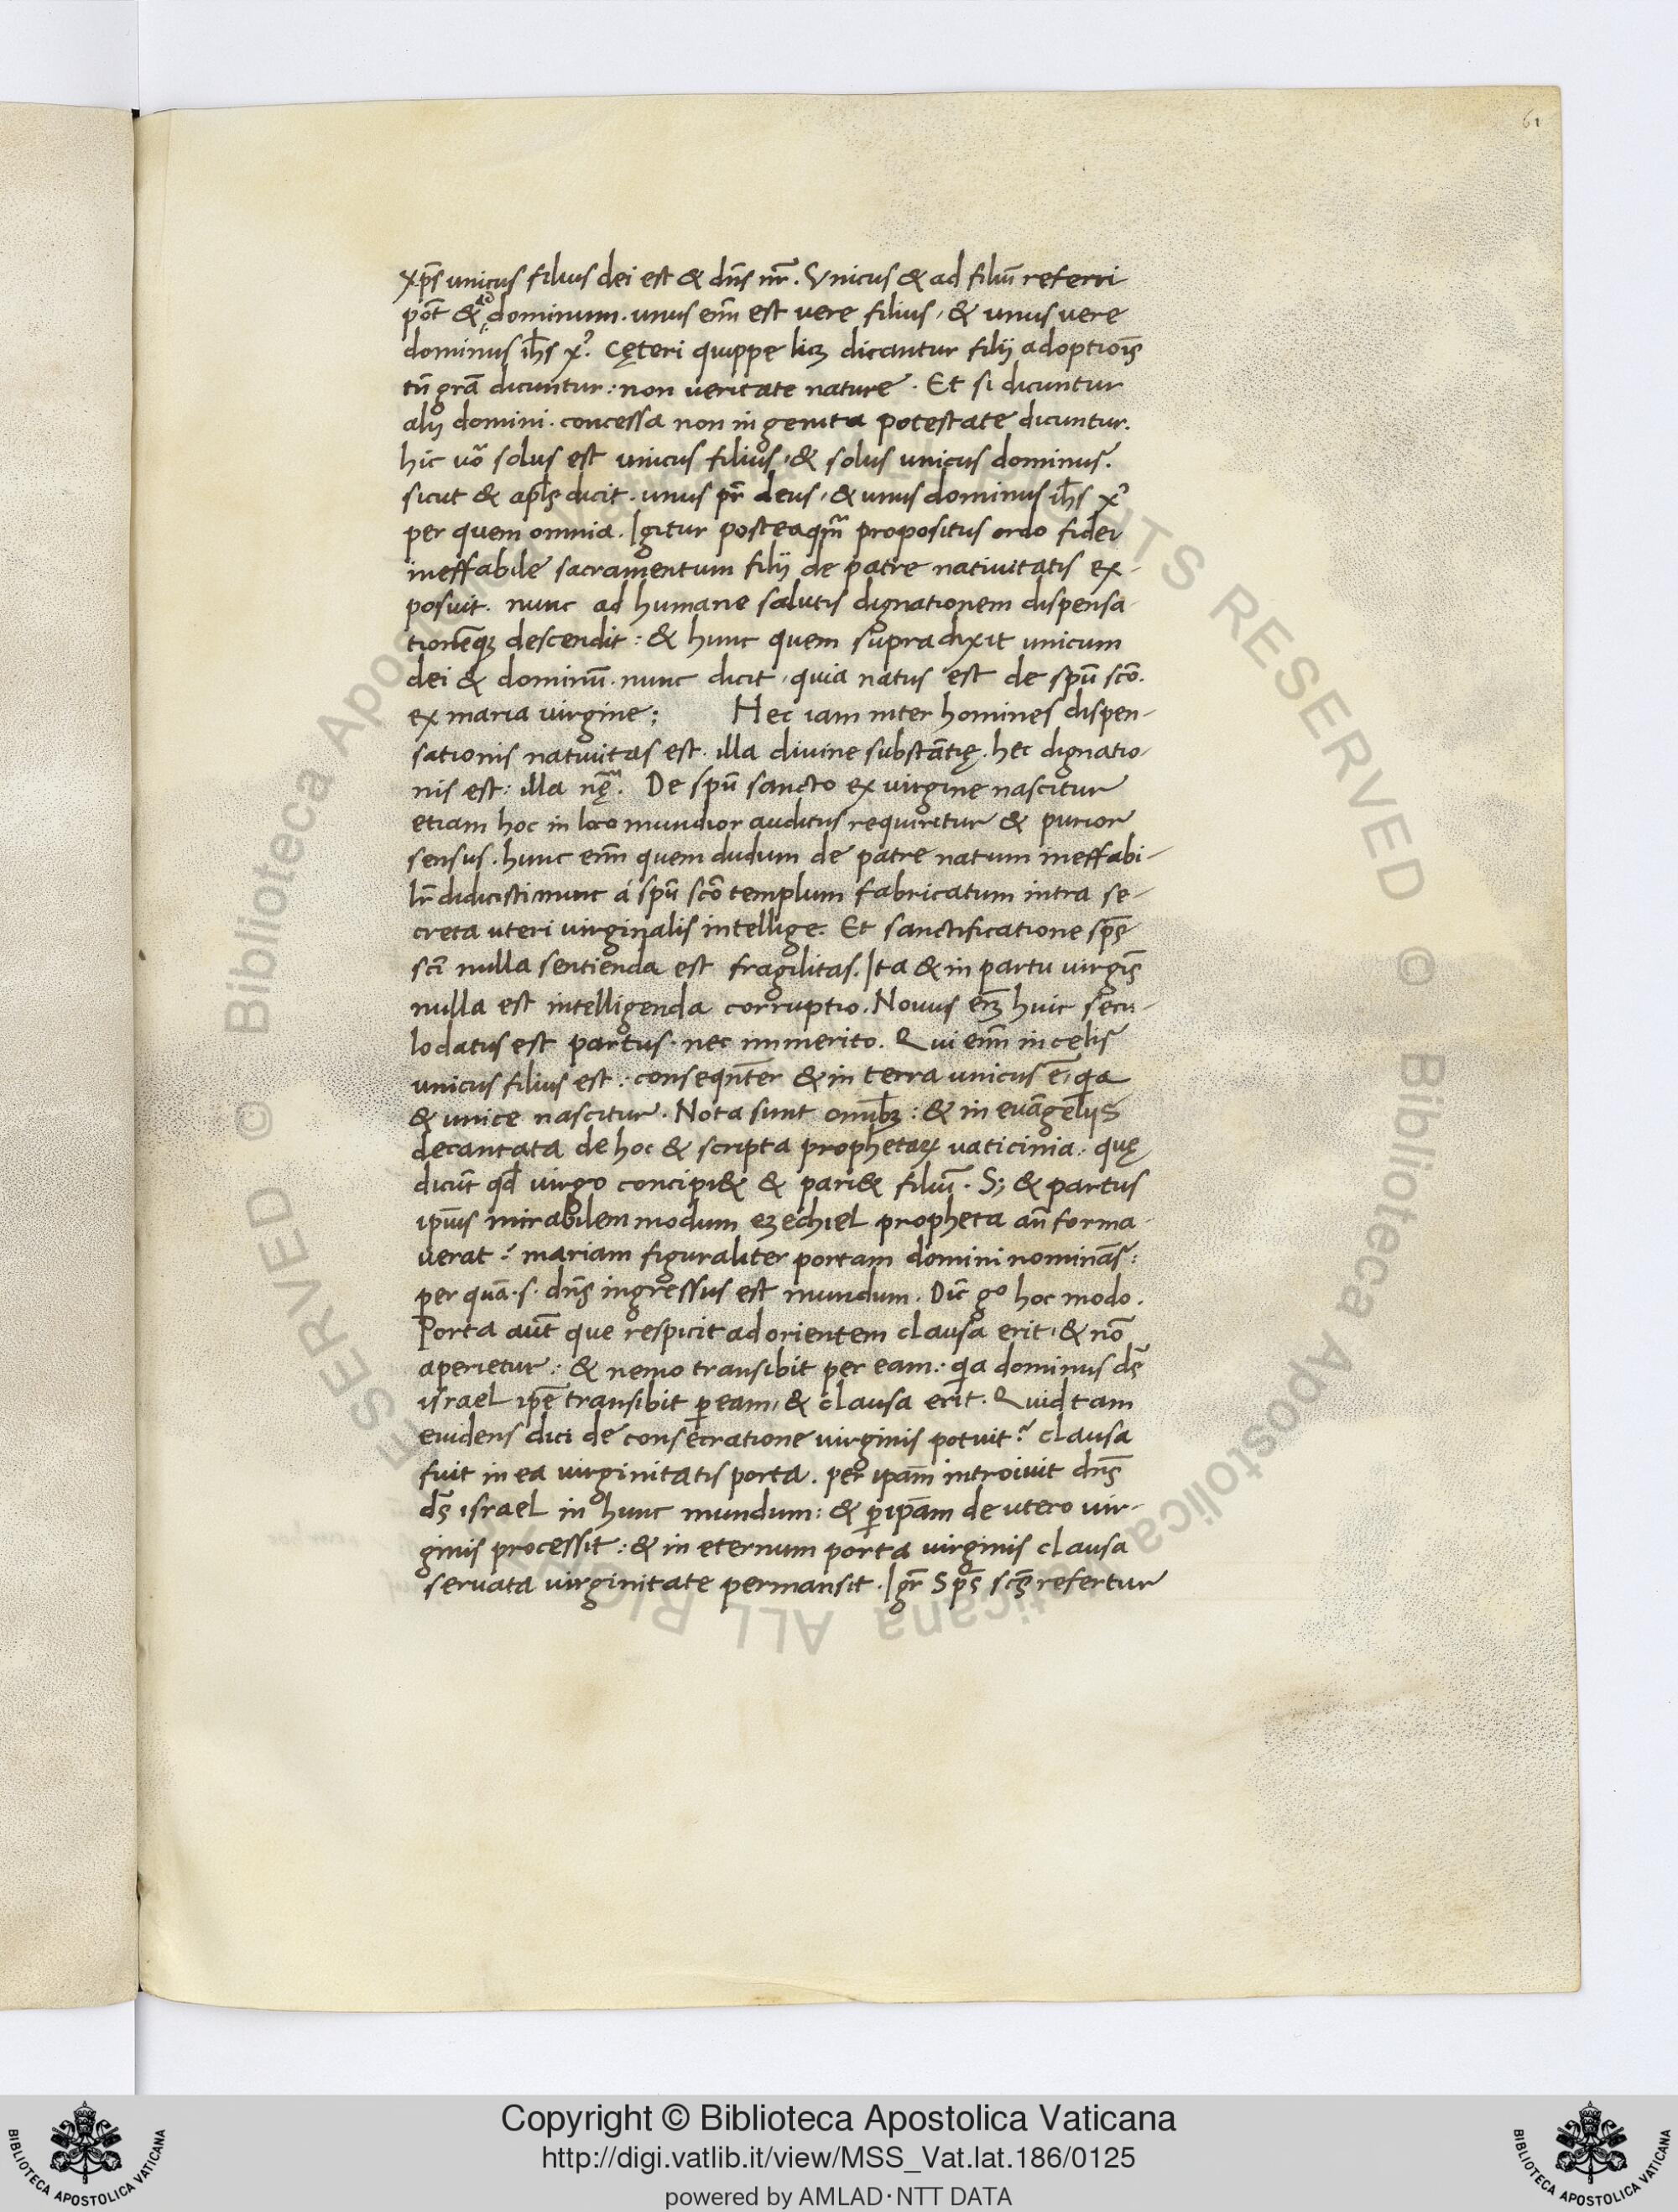 61
xp̄s unicus filius dei est & dn̄s nr̄. Vnicus & ad filiū referri
pōt & ad dominum. unus enī est vere filius, & unus vere
dominus ih̄s x᷒. Cęteri quippe licꝫ dicantur filij adoptiōis
tn̄ grā dicuntur: non veritate nature. Et si dicuntur
alij domini. concessa non ingenita potestate dicuntur.
hic uō solus est unicus filius, & solus unicus dominus.
sicut & apl̄s dicit. unus pr̄ deus, & unus dominus ih̄s x᷒
per quem omnia. Igitur posteaqm̄ propositus ordo fidei
ineffabile sacramentum filij de patre natiuitatis ex-
posuit. nunc ad humane salutis dignationem dispensa-
tionēqꝫ descendit: & hunc quem supra dixit unicum
dei & dominū. nunc dicit, quia natus est de spū scō.
ex maria virgine; Hec iam inter homines dispen-
sationis natiuitas est. illa divine substātię. hec dignatio-
nis est: illa nę̄. De spū sancto ex virgine nascitur
etiam hoc in loco mundior auditus requiritur & purior
sensus. hunc enī quem dudum de patre natum ineffabi-
lr̄ didicisti nunc á spū scō templum fabricatum intra se-
creta uteri virginalis intellige. Et sanctificatione sp̄s
sc̄i nulla sentienda est fragilitas. Ita & in partu virgīs
nulla est intelligenda corruptio. Nouus em̄ huic secu-
lo datus est partus. nec immerito. Qui enī in celis
unicus filius est: conseqn̄ter & in terra unicus ē, qa
& unice nascitur. Nota sunt omībꝫ: & in euāgelijs
decantata de hoc & scripta prophetaꝝ vaticinia. quę
dicūt qd̄ virgo concipi& & pari& filiū. S; & partus
ip̄ius mirabilem modum ezechiel propheta an̄ forma-
verat? mariam figuraliter portam domini nominās:
per quā .s. dn̄s ingressus est mundum. Dic̄ gº hoc modo.
Porta aūt que respicit ad orientem clausa erit, & nō
aperietur: & nemo transibit per eam: qa dominus ds̄
israel ip̄e transibit ꝑ eam, & clausa erit. Quid tam
euidens dici de consecratione virginis potuit? clausa
fuit in ea virginitatis porta. per ipam̄ introiuit dn̄s
ds̄ israel in hunc mundum: & ꝑ ip̄am de utero vir-
ginis processit: & in eternum porta virginis clausa
seruata virginitate permansit. Igr̄ Sp̄s sc̄s refertur
Copyright © Biblioteca Apostolica Vaticana
http://digi.vatlib.it/view/MSS_Vat.lat.186/0125
powered by AMLAD·NTT DATA